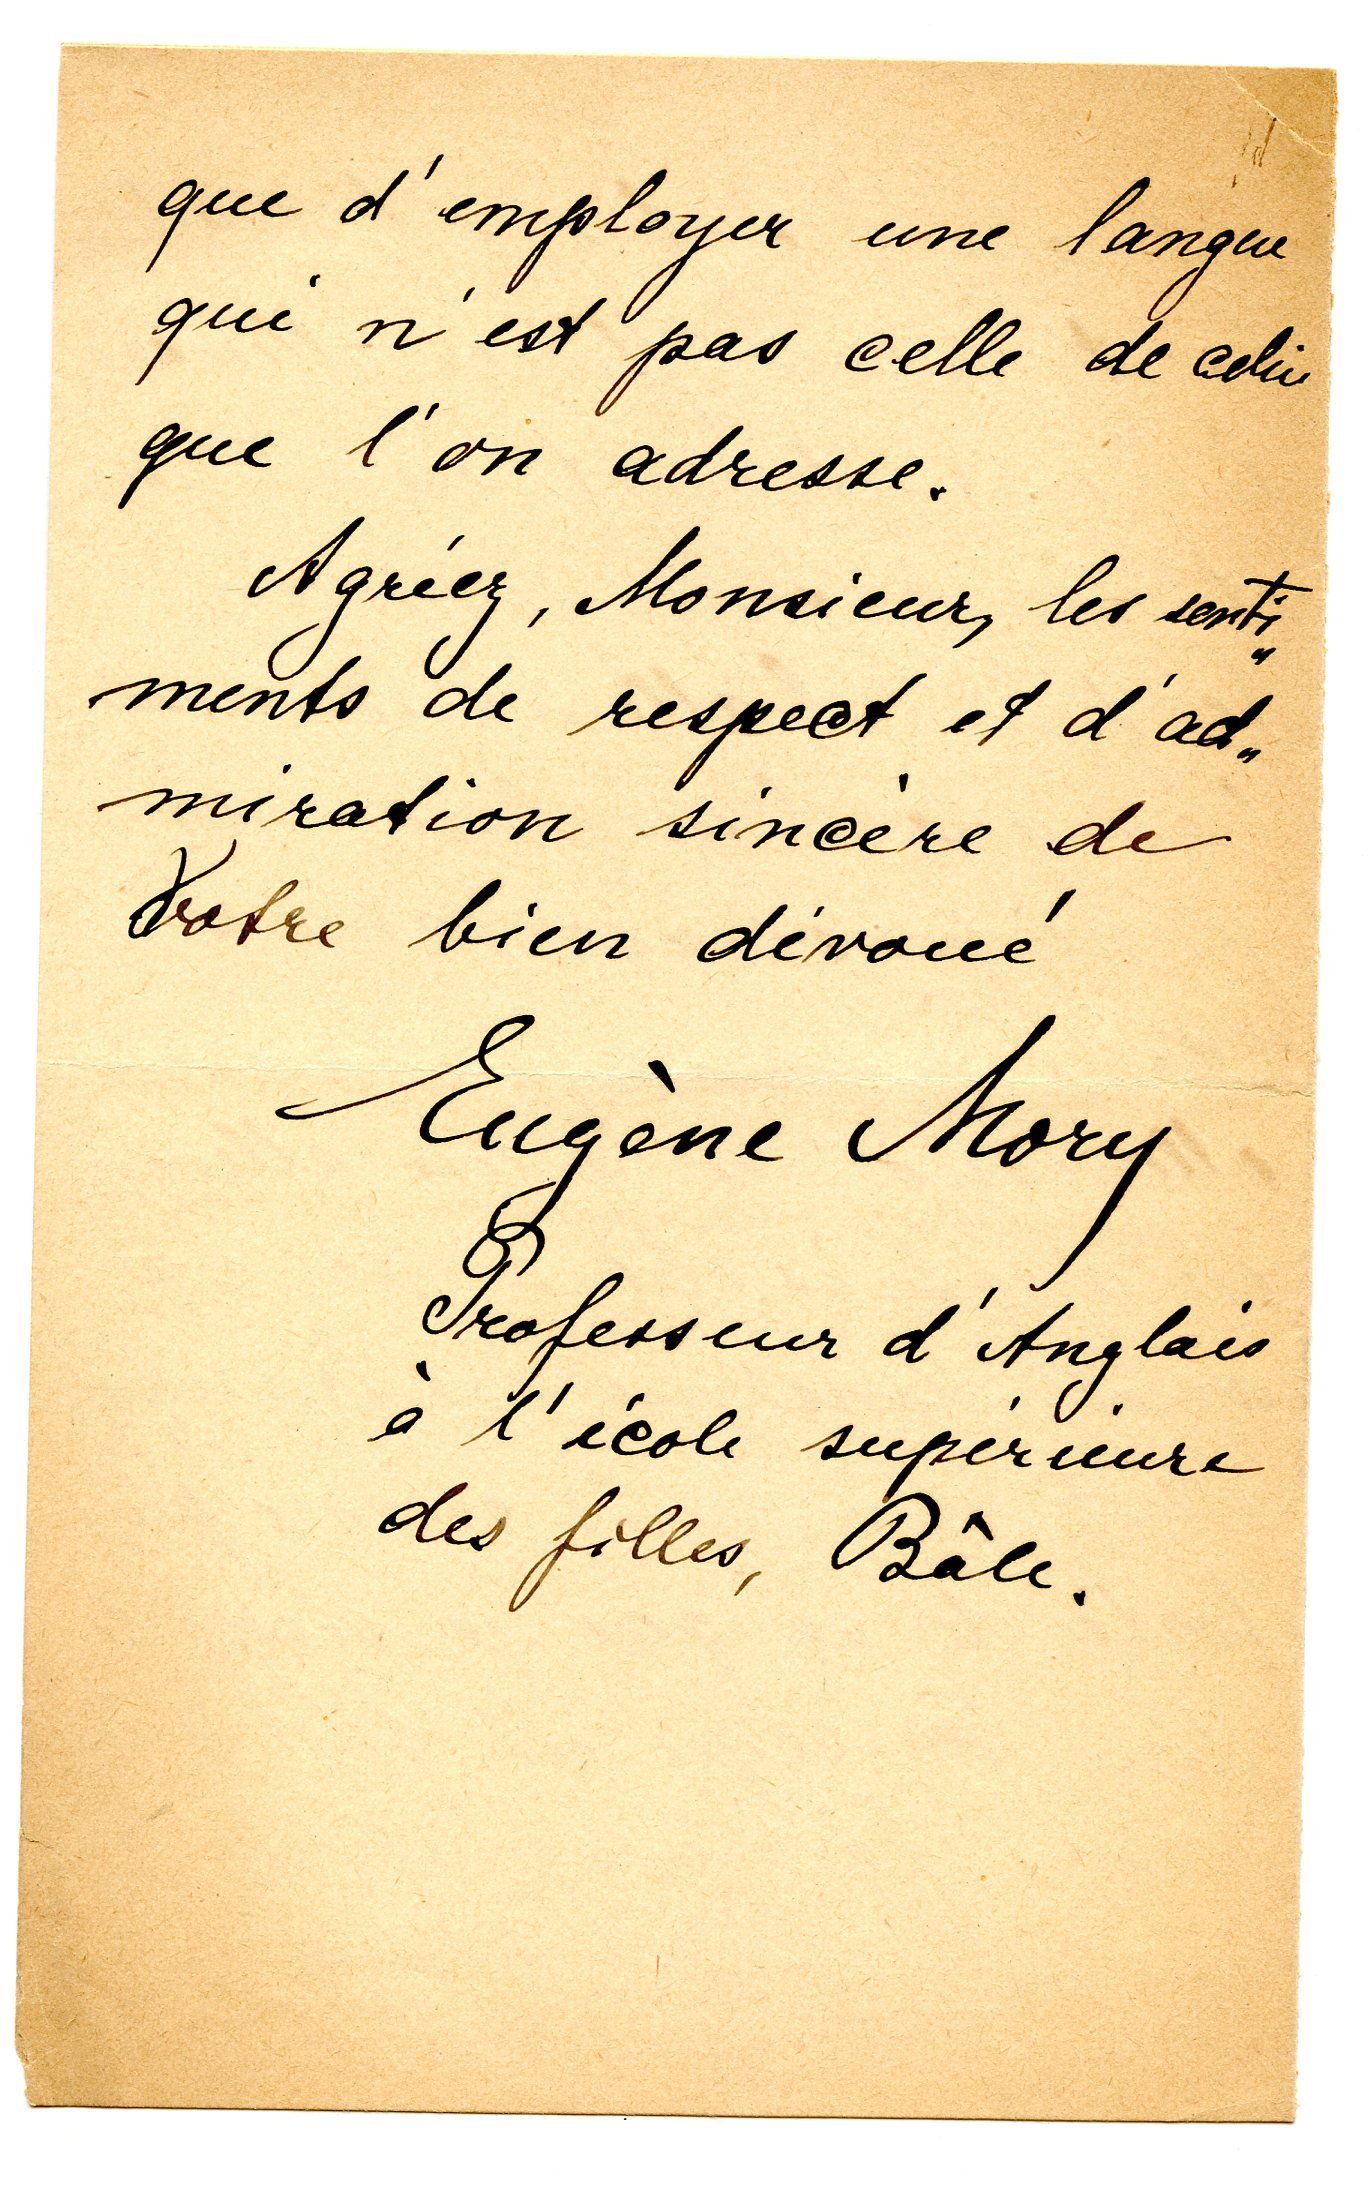 que d'employer une langue
qui n'est pas celle de celui
que l'on adresse.
Agréez, Monsieur, les senti„
ments de respect et d'ad„
miration sincère de
Votre bien dévoué
Eugène Mory
Professeur d'Anglais
à l'école supérieure
des filles, Bâle.